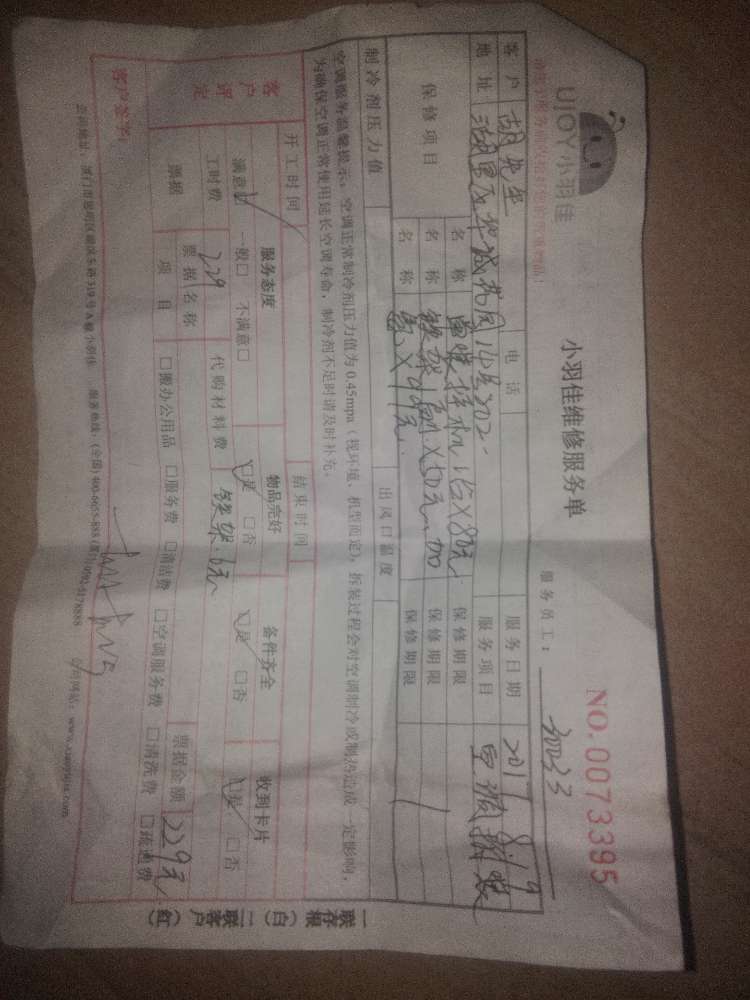 UJOY小羽佳
小羽佳维修服务单
NO. 0073395
服务员工: 30233
客户 胡先生 电话 服务日期 2017 8/19
地址 湖里区华 服务项目 空调拆装
保修项目 名称 1台X80元 保修期限
名称 铁架 X50元 保修期限
名称 保修期限
制冷剂压力值 出风口温度
空调服务温馨提示:空调正常制冷剂压力值为0.45mpa(视环境、机型而定),拆装过程会对空调制冷或制热造成一定影响,
为确保空调正常使用延长空调寿命,制冷剂不足时请及时补充。
开工时间 结束时间
客户评定 服务态度 物品完好 备件齐全 收到卡片
满意☑ 一般□ 不满意□ ☑是 □否 ☑是 □否 ☑是 □否
工时费 229 代购材料费 铁架
票据 票据名称 票据金额 229元
项目 □搬办公用品 □服务费 □清洁费 □空调服务费 □清洗费 □疏通费
客户签字:
公司地址:厦门市思明区 319号A 小羽佳 服务热线:(全国)400-6655-888 (厦门)0592-5178888 公司网站:www.xiaoyujia.com
一联存根(白) 二联客户(红)